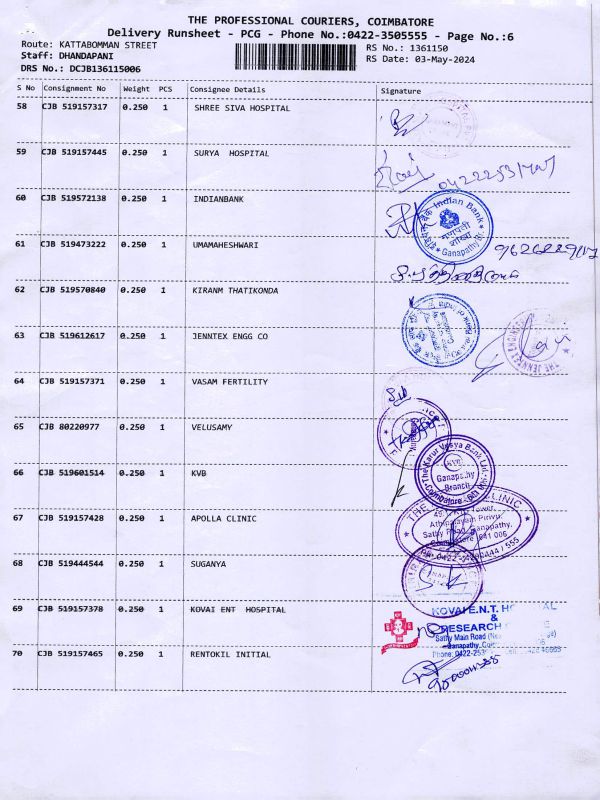 THE PROFESSIONAL COURIERS, COIMBATORE
Delivery Runsheet - PCG - Phone No.:0422-3505555 - Page No.:6
Route: KATTABOMMAN STREET
Staff: DHANDAPANI
DRS No.: DCJB136115006
RS No.: 1361150
RS Date: 03-May-2024
S No Consignment No Weight PCS Consignee Details Signature
58 CJB 519157317 0.250 1 SHREE SIVA HOSPITAL
59 CJB 519157445 0.250 1 SURYA HOSPITAL
60 CJB 519572138 0.250 1 INDIANBANK
Indian Bank
गणपती
शाखा
Ganapathy Br.
61 CJB 519473222 0.250 1 UMAMAHESHWARI
62 CJB 519570840 0.250 1 KIRANM THATIKONDA
63 CJB 519612617 0.250 1 JENNTEX ENGG CO
64 CJB 519157371 0.250 1 VASAM FERTILITY
65 CJB 80220977 0.250 1 VELUSAMY
66 CJB 519601514 0.250 1 KVB
The Karur Vysya Bank Ltd.
KVB
Ganapathy
Branch
Coimbatore
67 CJB 519157428 0.250 1 APOLLA CLINIC
CLINIC
Sathy Road, Ganapathy,
641 006
68 CJB 519444544 0.250 1 SUGANYA
69 CJB 519157378 0.250 1 KOVAI ENT HOSPITAL
KOVAI E.N.T.
&
RESEARCH
Sathy Main Road
Ganapathy,
Phone: 0422-
70 CJB 519157465 0.250 1 RENTOKIL INITIAL